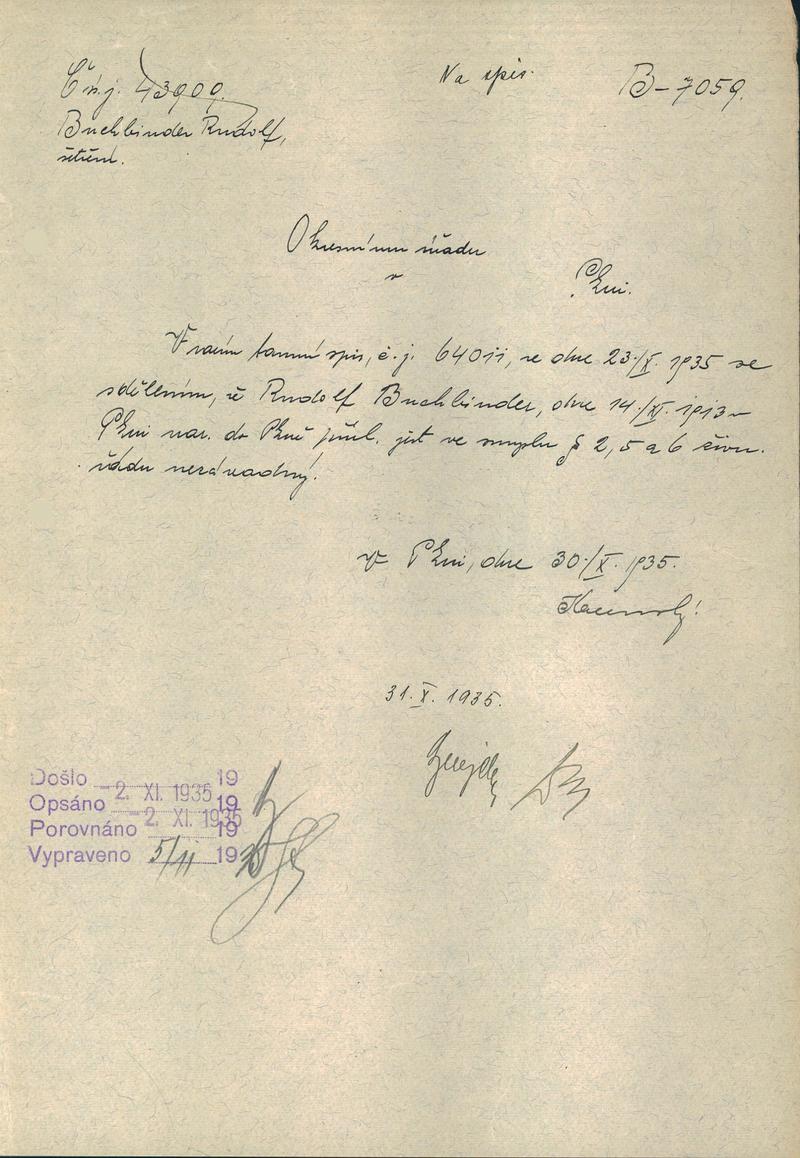 Č. n. j. 43909
Na spis.
B-7059.
Buchbinder Rudolf,
šetření.
Okresnímu úřadu
v
Plzni.
Vracím tamní spis, č. j. 64011, ze dne 23./X. 1935 se
sdělením, že Rudolf Buchbinder, dne 14./XI. 1913 v
Plzni nar. do Plzně přísl. jest ve smyslu § 2, 5 a 6 živn.
řádu nezávadný.
V Plzni, dne 30./X. 1935.
31. X. 1935.
Došlo 19
Opsáno -2. XI. 1935 19
Porovnáno -2. XI. 1935 19
Vypraveno 5/11 19